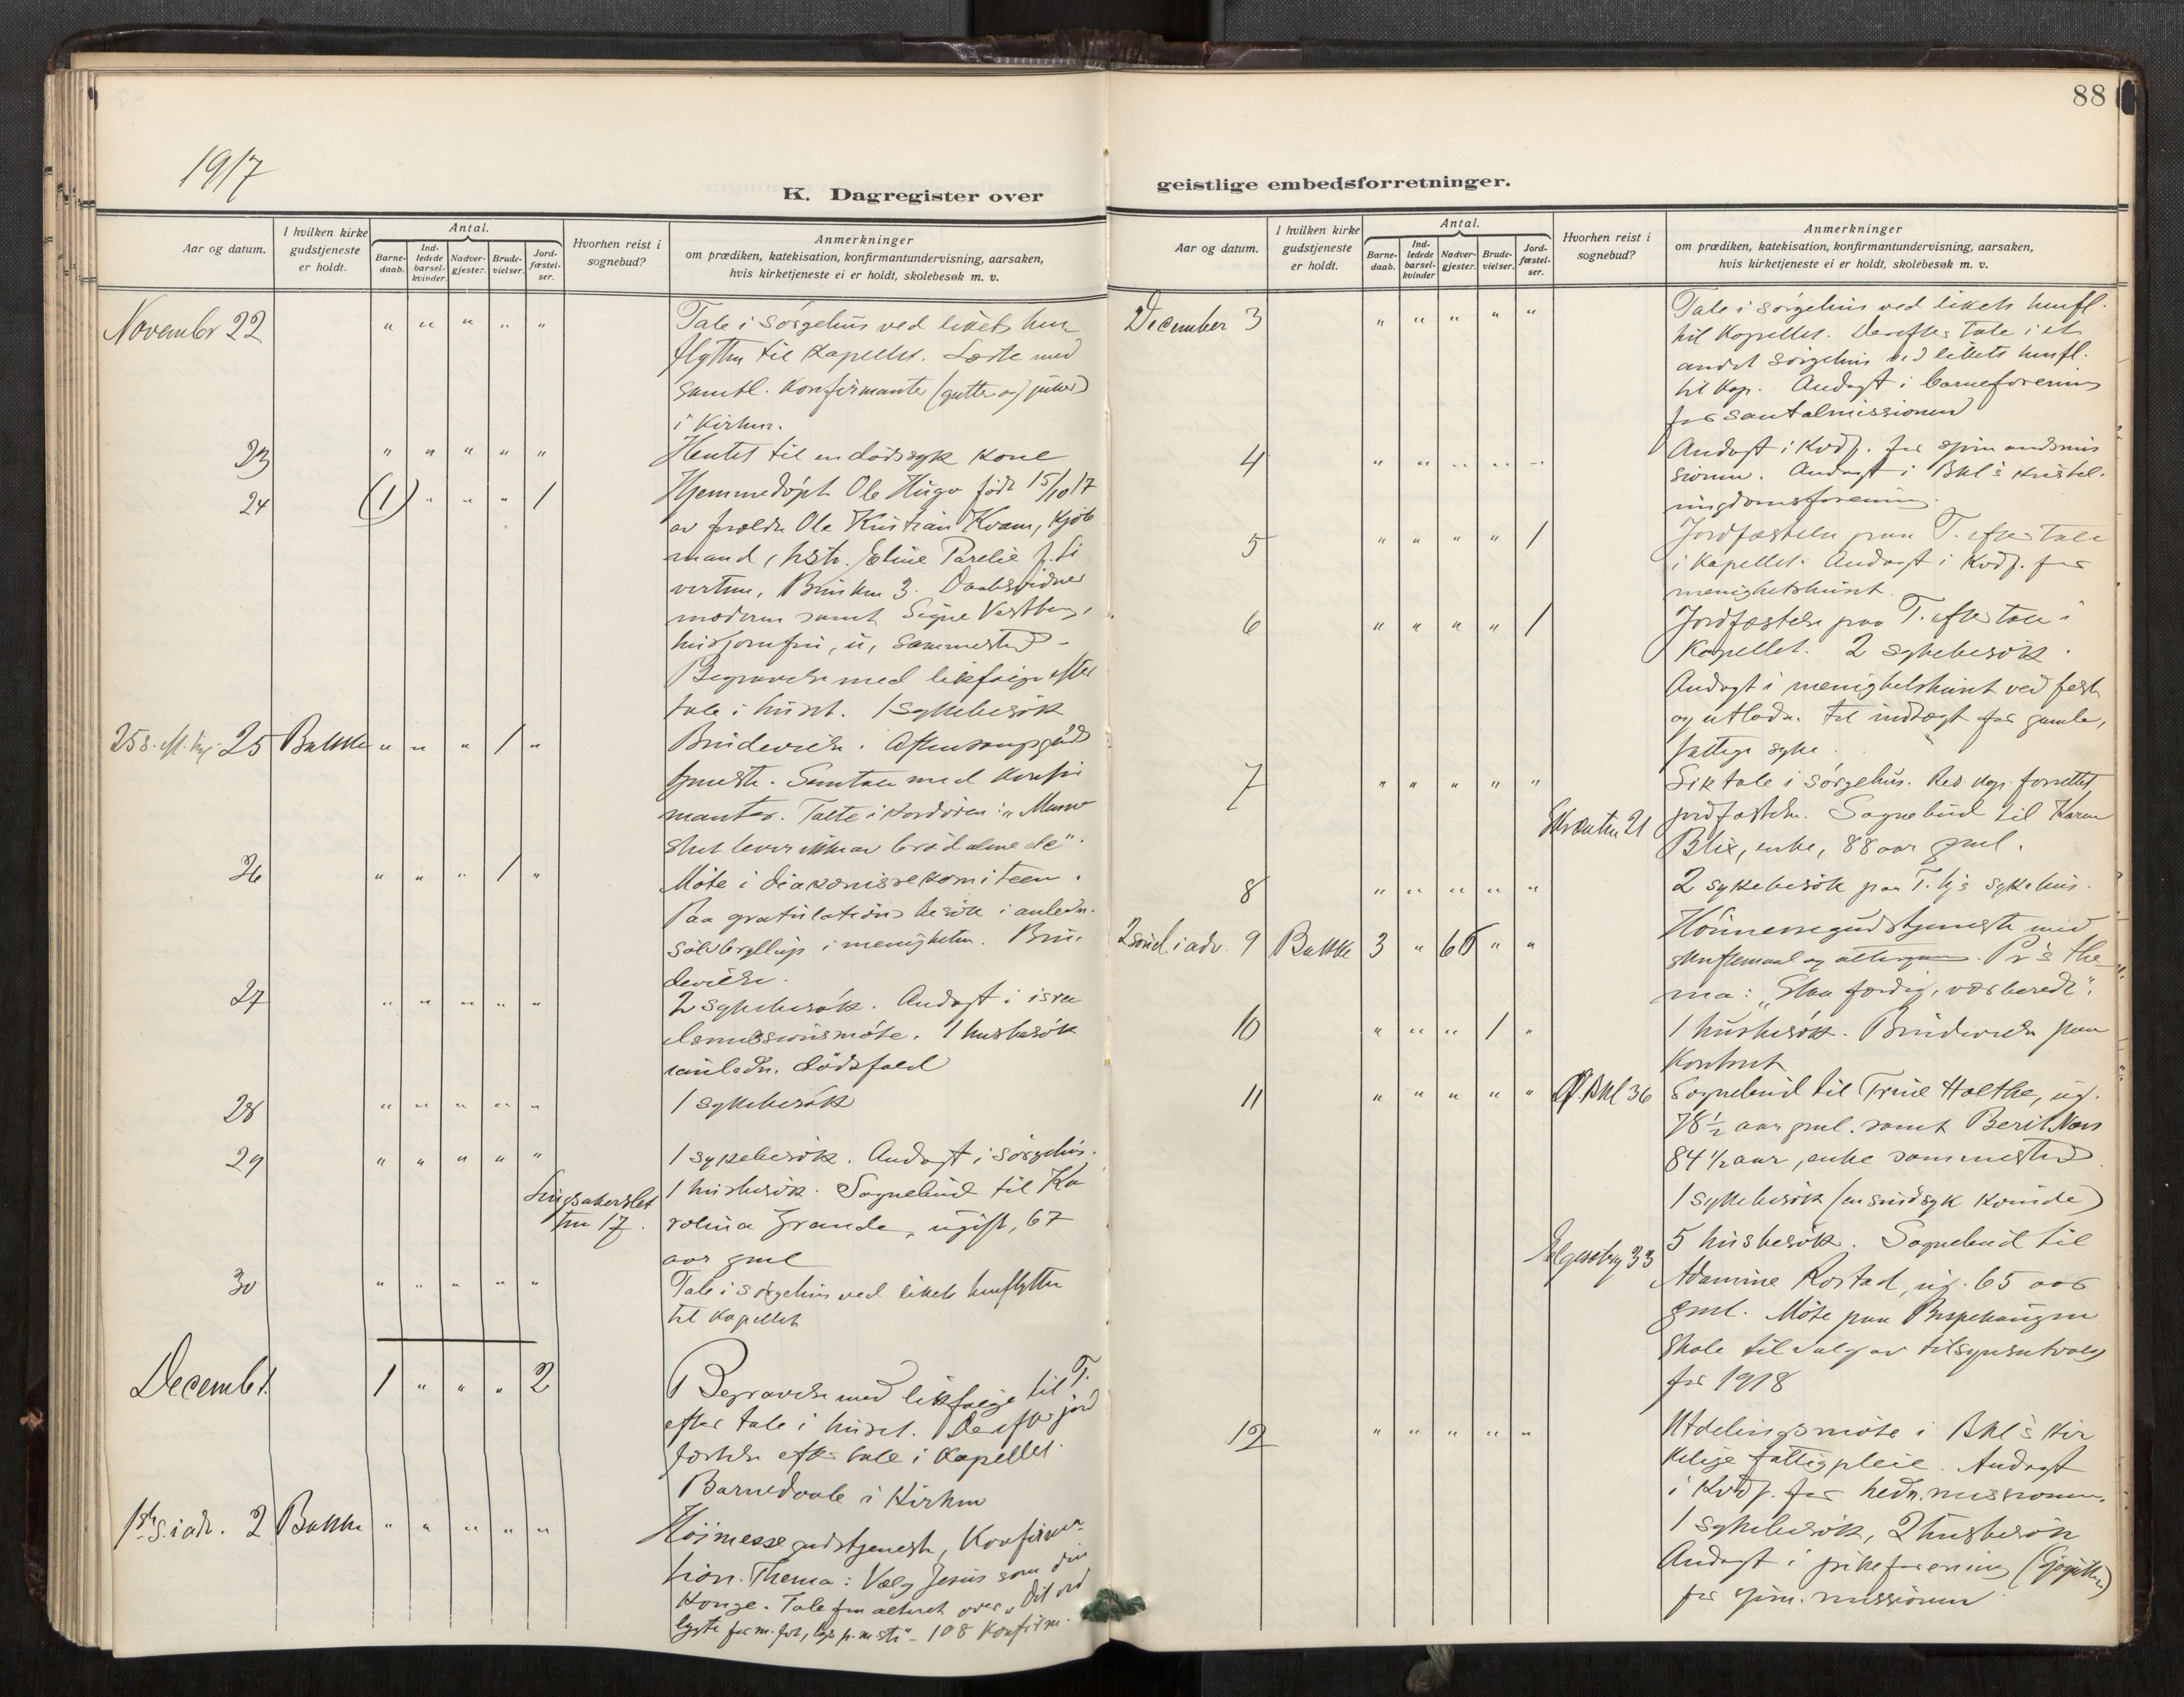 88
1917
K. Dagregister over
geistlige embedsforretninger.
Aar og datum.
I hvilken kirke gudstjeneste er holdt.
Antal.
Barne-daab.
Ind-ledede barsel-kvinder.
Nadver-gjester.
Brude-vielser.
Jord-fæstel-ser.
Hvorhen reist i sognebud?
Anmerkninger
om prædiken, katekisation, konfirmantundervisning, aarsaken,
hvis kirketjeneste ei er holdt, skolebesøk m. v.
Novembr 22 " " " " " Tale i sørgehus ved likets hen
flytten til kapellet. Læste med
samtl. konfirmanter (gutter og piker)
i kirken.
23 " " " " " Hentet til en dødssyk kone
24 (1) " " " 1 Hjemmedøpt Ole Hugo født 15/10 17
av foreldre Ole Kristian Kvam, kjøb
mand, hstr. Eline Parelie f. Si
vertsen, Brinken 3. Daabsvidner
moderen samt Signe
husjomfru, u, sammested -
Begravelse med likfølge efter
tale i huset. 1 sykebesøk
25 s. eft. 25 Bakke " " " 1 " Brudevielse. Aftensangsguds
tjeneste. Samtale med konfir
manter. Talte i "Menne
sket lever ikke av brød alene etc".
26 " " " 1 " Møte i diakonissekomiteen.
Paa gratulationsbesøk i anledn.
sølvbryllup i menigheten. Bru
devielse.
27 " " " " " 2 sykebesøk. Andagt i isra
elsmissionsmøte. 1 husbesøk
i anledn. dødsfald
28 " " " " " 1 sykebesøk
29 " " " " " 1 sykebesøk. Andagt i sørgehus.
Singsakerslet
ten 17. 1 husbesøk. Sognebud til Ka
rolina Grande, ugift, 67
aar gml
30 " " " " " Tale i sørgehus ved likets henflytten
til kapellet
Decemb 1. 1 " " " 2 Begravelse med likfølge til T.
efter tale i huset. Derefter jord
fæstelse efter tale i kapellet.
Barnedaab i kirken
1ste s. i adv. 2 Bakke " " " " " Høimessegudstjeneste, Konfirma-
tion. Thema: Vælg Jesus som din
Konge. Tale fra alteret over "Dit ord
lygte for m. fot, lys p. m sti" - 108 konfirm.
Aar og datum.
I hvilken kirke gudstjeneste er holdt.
Antal.
Barne-daab.
Ind-ledede barsel-kvinder
Nadver-gjester.
Brude-vielser.
Jord-fæstel-ser.
Hvorhen reist i sognebud?
Anmerkninger
om prædiken, katekisation, konfirmantundervisning, aarsaken,
hvis kirketjeneste ei er holdt, skolebesøk m. v.
December 3 " " " " " Tale i sørgehus ved likets henfl.
til kapellet. Derefter tale i et
andet sørgehus ved likets henfl.
til kap. Andagt i barneforening
for santalmissionen
4 " " " " " Andagt i kvdf. for sjømandsmis
sionen. Andagt i Bkl's kristel.
ungdomsforening.
5 " " " " 1 Jordfæstelse paa T. efter tale
i kapellet. Andagt i kvdf. for
menighetshuset.
6 " " " " 1 Jordfæstelse paa T. efter tale i
kapellet. 2 sykebesøk.
Andagt i menighetshuset ved fest
og utlodn. til indtægt for gamle,
fattige syke.
7 " " " " " Liktale i sørgehus. Res. kap. forrettet
21 jordfæstelsen. Sognebud til Karen
Blix, enke, 88 aar gml.
8 " " " " " 2 sykebesøk paa T. hjs sykehus.
2 sønd. i adv. 9 Bakke 3 " 66 " " Høimessegudstjeneste med
skriftemaal og altergang. Pr's the
ma: "Staa færdig, vær beredt".
10 " " " 1 " 1 husbesøk. Brudevielse paa
kontoret
11 " " " " " Ø. Bkl 36 Sognebud til Trine Holthe, ug.
78 1/2 aar gml. samt Berit Næss
84 1/2 aar, enke sammested.
1 sykebesøk (en sindssyk kvinde)
Elgeseterg 33 5 husbesøk. Sognebud til
Adamine Rostad, ug. 65 aar
gml. Møte paa Bispehaugen
skole til valg av tilsynsutvalg
for 1918
12 " " " " " Utdelingsmøte i Bkl's kir
kelige fattigpleie. Andagt
i kvdf. for hedn. missionen.
1 sykebesøk, 2 husbesøk
Andagt i pikeforening
for sjøm. missionen